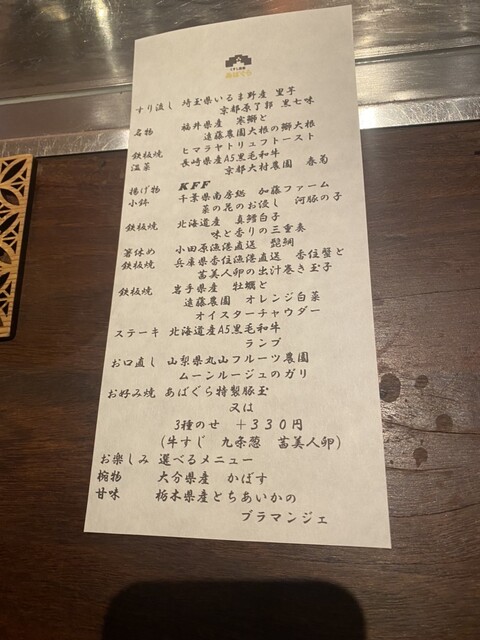 あばぐら
すり流し 埼玉県いるま野産 里芋
京都原了郭 黒七味
名物 福井県産 寒鰤と
遠藤農園大根の鰤大根
ヒマラヤトリュフトースト
鉄板焼 長崎県産A5黒毛和牛
温菜 京都大村農園 春菊
揚げ物 KFF
小鉢 千葉県南房総 加藤ファーム
菜の花のお浸し 河豚の子
鉄板焼 北海道産 真鱈白子
味と香りの三重奏
箸休め 小田原漁港直送 髭鯛
鉄板焼 兵庫県香住漁港直送 香住蟹と
茜美人卵の出汁巻き玉子
鉄板焼 岩手県産 牡蠣と
遠藤農園 オレンジ白菜
オイスターチャウダー
ステーキ 北海道産A5黒毛和牛
ランプ
お口直し 山梨県丸山フルーツ農園
ムーンルージュのガリ
お好み焼 あばぐら特製豚玉
又は
3種のせ +330円
(牛すじ 九条葱 茜美人卵)
お楽しみ 選べるメニュー
椀物 大分県産 かぼす
甘味 栃木県産とちあいかの
ブラマンジェ